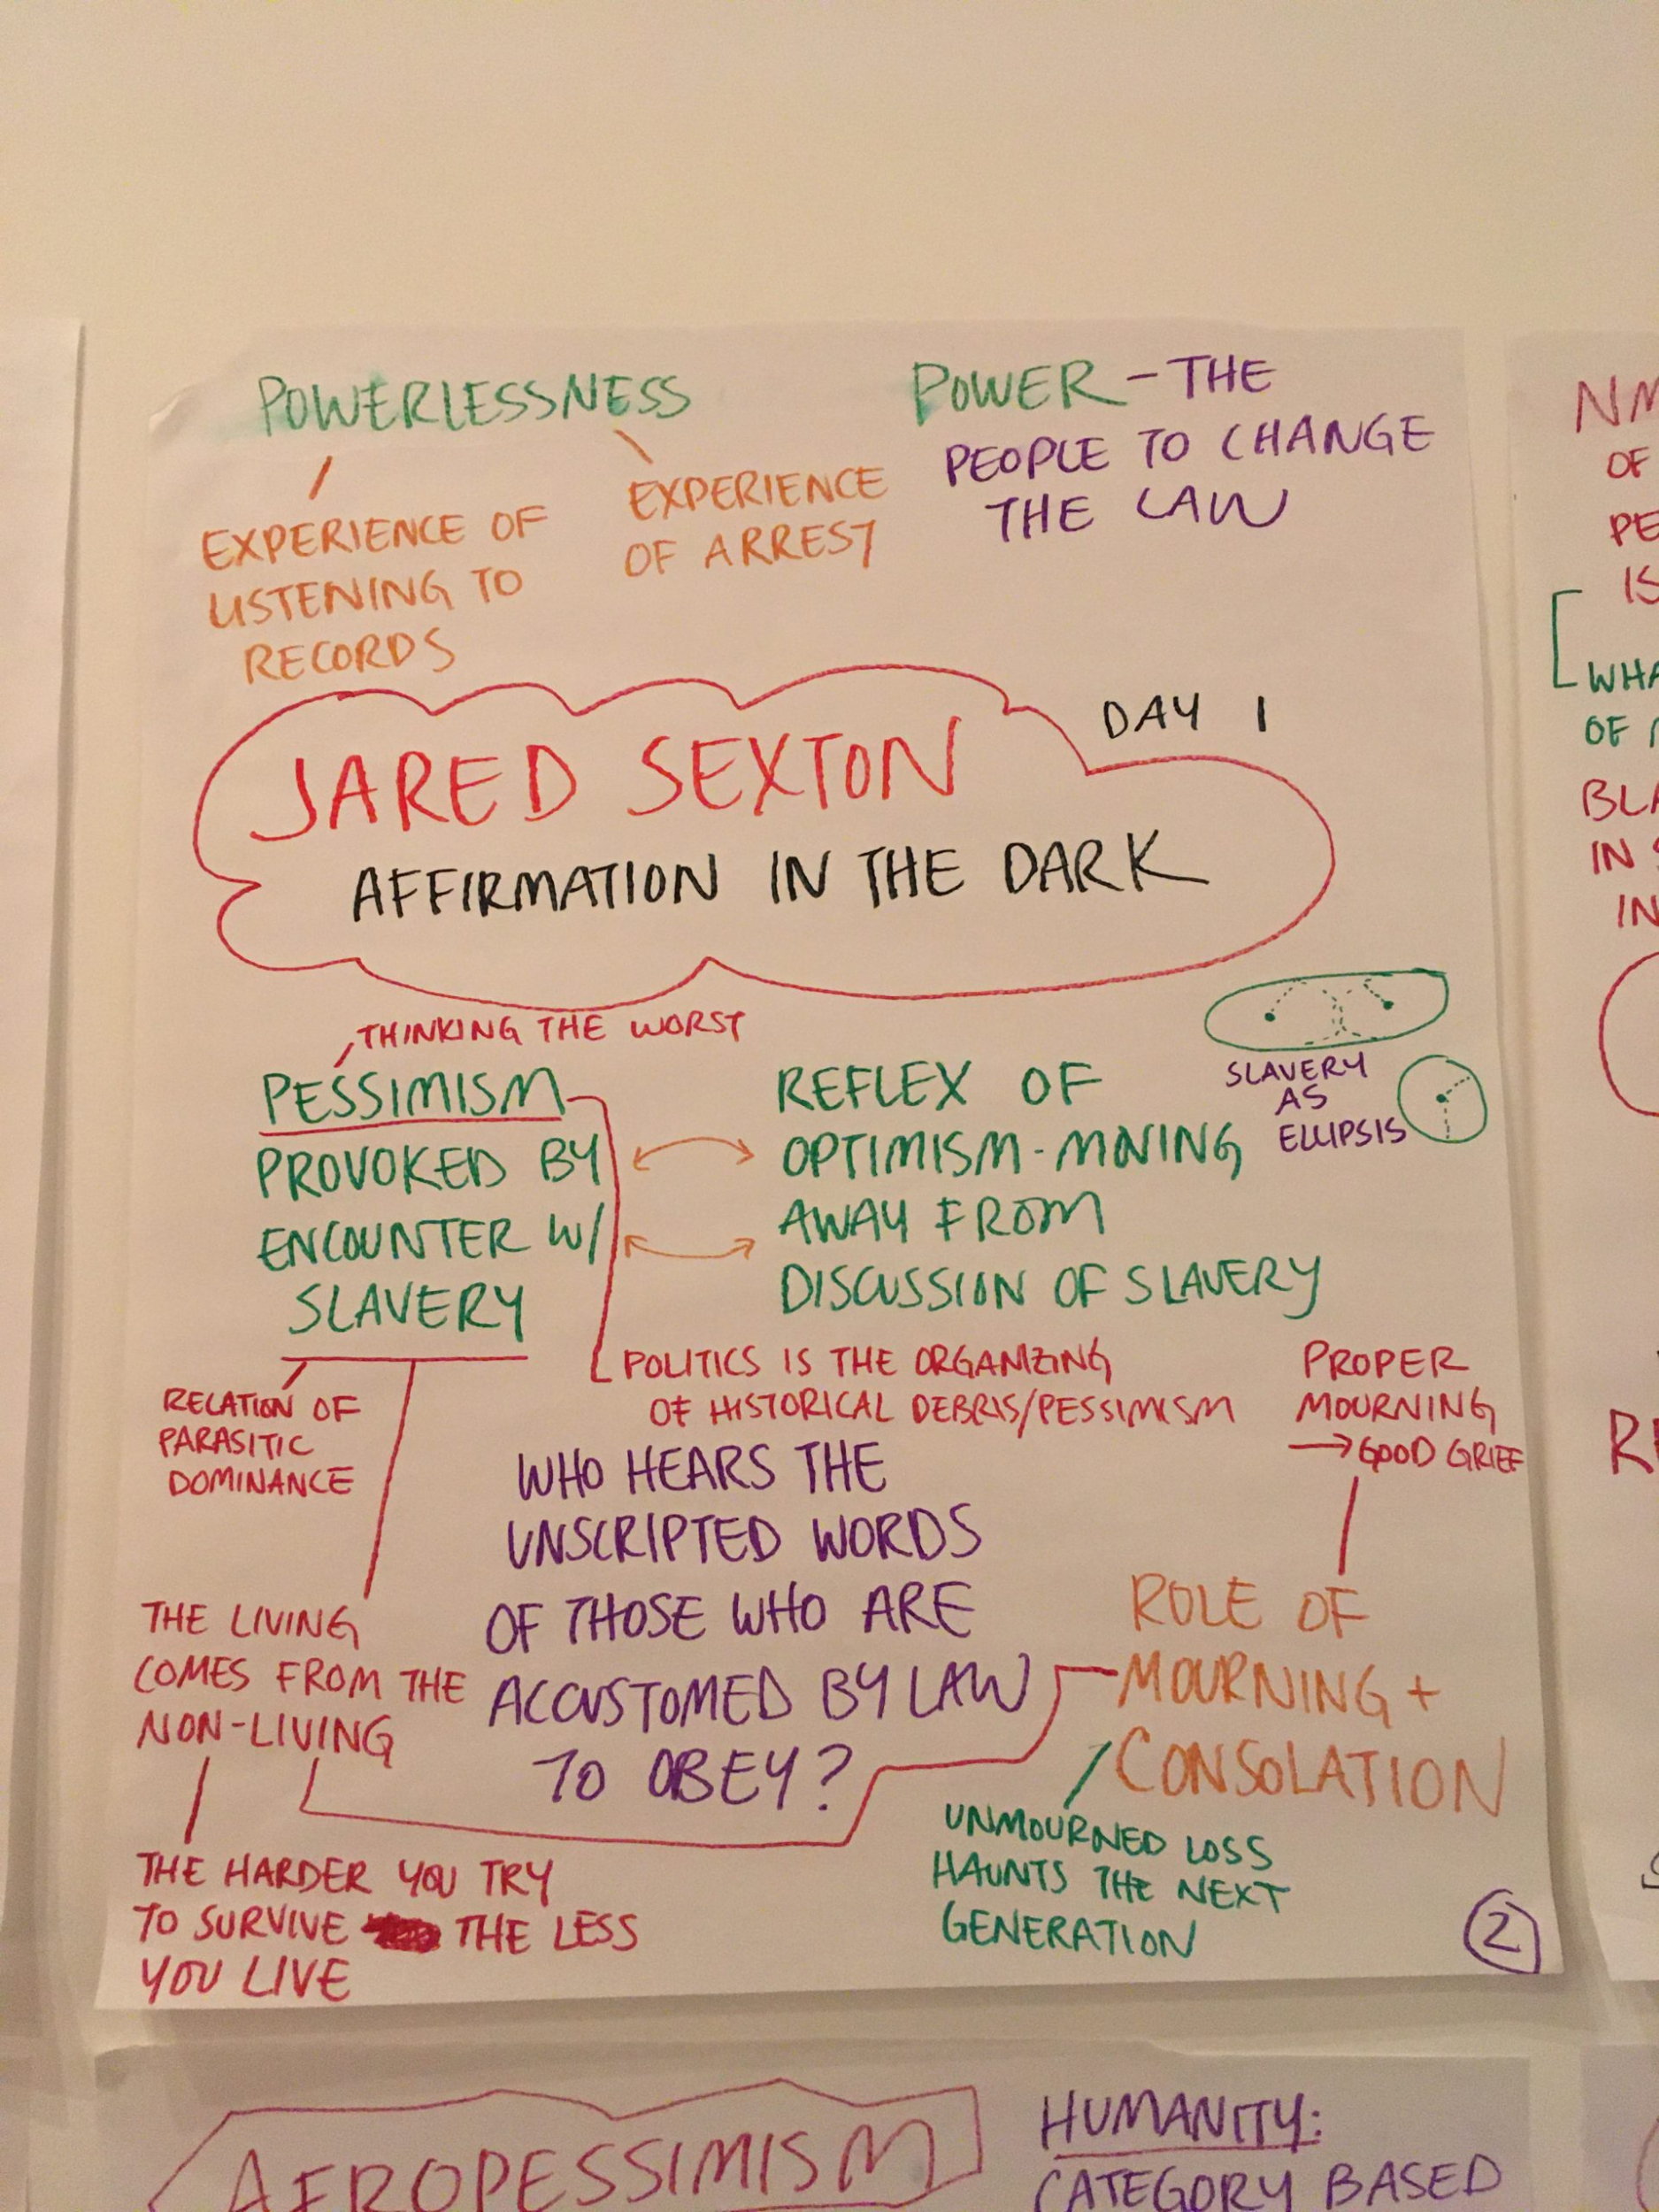 POWERLESSNESS
EXPERIENCE OF
LISTENING TO
RECORDS
EXPERIENCE
OF ARREST
POWER - THE
PEOPLE TO CHANGE
THE LAW
DAY 1
JARED SEXTON
AFFIRMATION IN THE DARK
THINKING THE WORST
PESSIMISM
PROVOKED BY
ENCOUNTER W/
SLAVERY
REFLEX OF
OPTIMISM - MOVING
AWAY FROM
DISCUSSION OF SLAVERY
SLAVERY
AS
ELLIPSIS
POLITICS IS THE ORGANIZING
OF HISTORICAL DEBRIS/PESSIMISM
RELATION OF
PARASITIC
DOMINANCE
PROPER
MOURNING
→ GOOD GRIEF
WHO HEARS THE
UNSCRIPTED WORDS
OF THOSE WHO ARE
ACCUSTOMED BY LAW
TO OBEY?
ROLE OF
MOURNING +
CONSOLATION
THE LIVING
COMES FROM THE
NON-LIVING
UNMOURNED LOSS
HAUNTS THE NEXT
GENERATION
THE HARDER YOU TRY
TO SURVIVE THE LESS
YOU LIVE
2
AFROPESSIMISM
HUMANITY:
CATEGORY BASED
OF
IS
OF
IN
IN